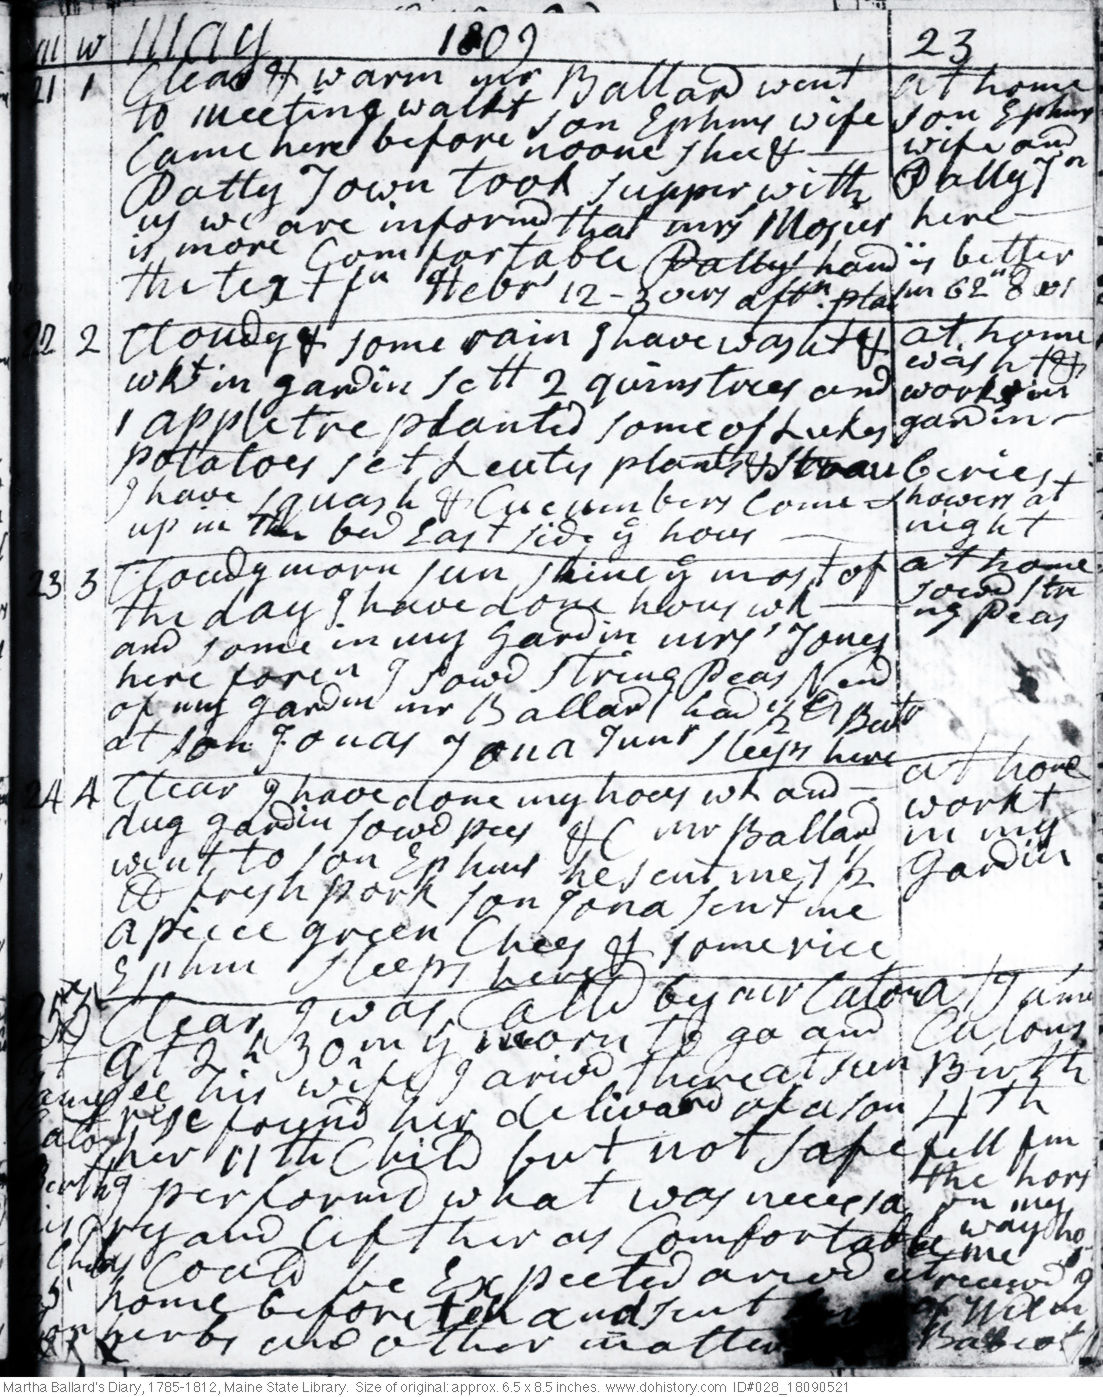 May 1809 23
21 1 Clear & warm mr Ballard went
to meeting walkt son Ephms wife
Came here before noone shee &
Patty Town took supper with
us we are informd that mrs Mosier
is more Comfortable Pattys hand is better
the text fm Hebrs 12 - 3 vers aftn
at home
son Ephms
wife and
Patty Tn
here
22 2 Cloudy & some rain I have washt &
wkt in gardin sett 2 quins trees and
1 apple tre planted some of Lukes
potatoes set plants & Strauberies
I have squash & Cucumbers Come
up in the bed East side ÿ hous
at home
washt &
workt in
gardin
showers at
night
23 3 Cloudy morn sun shine ÿ most of
the day I have done hous wk
and some in my gardin mrs Jones
here foren I sowd string Peas N end
of my gardin mr Ballard had
at son Jonas Jona Junr sleeps here
at home
sowd stri
ng Peas
24 4 Clear I have done my hous wk and
dug gardin sowd pees &C mr Ballard
went to son Ephms he sent me 7 1/2
lb fresh pork son Jona sent me
a piece green Chees & some rice
Ephm sleeps here
at home
workt
in my
Gardin
25 5 Clear I was Calld by mr Caton
at 2 h 30 m ÿ morn to go and
see his wife I arivd there at sun
rise found her delivard of a son
her 11th Child but not safe
I performd what was necesa
ry and left her as Comfortable
as Could be Expected arivd at
home before ten and sent
herbs and other matters
at James
Catons
Birth
4th
fell fm
the hors
on my
way ho
me
receivd
James
Catons
Birth
his